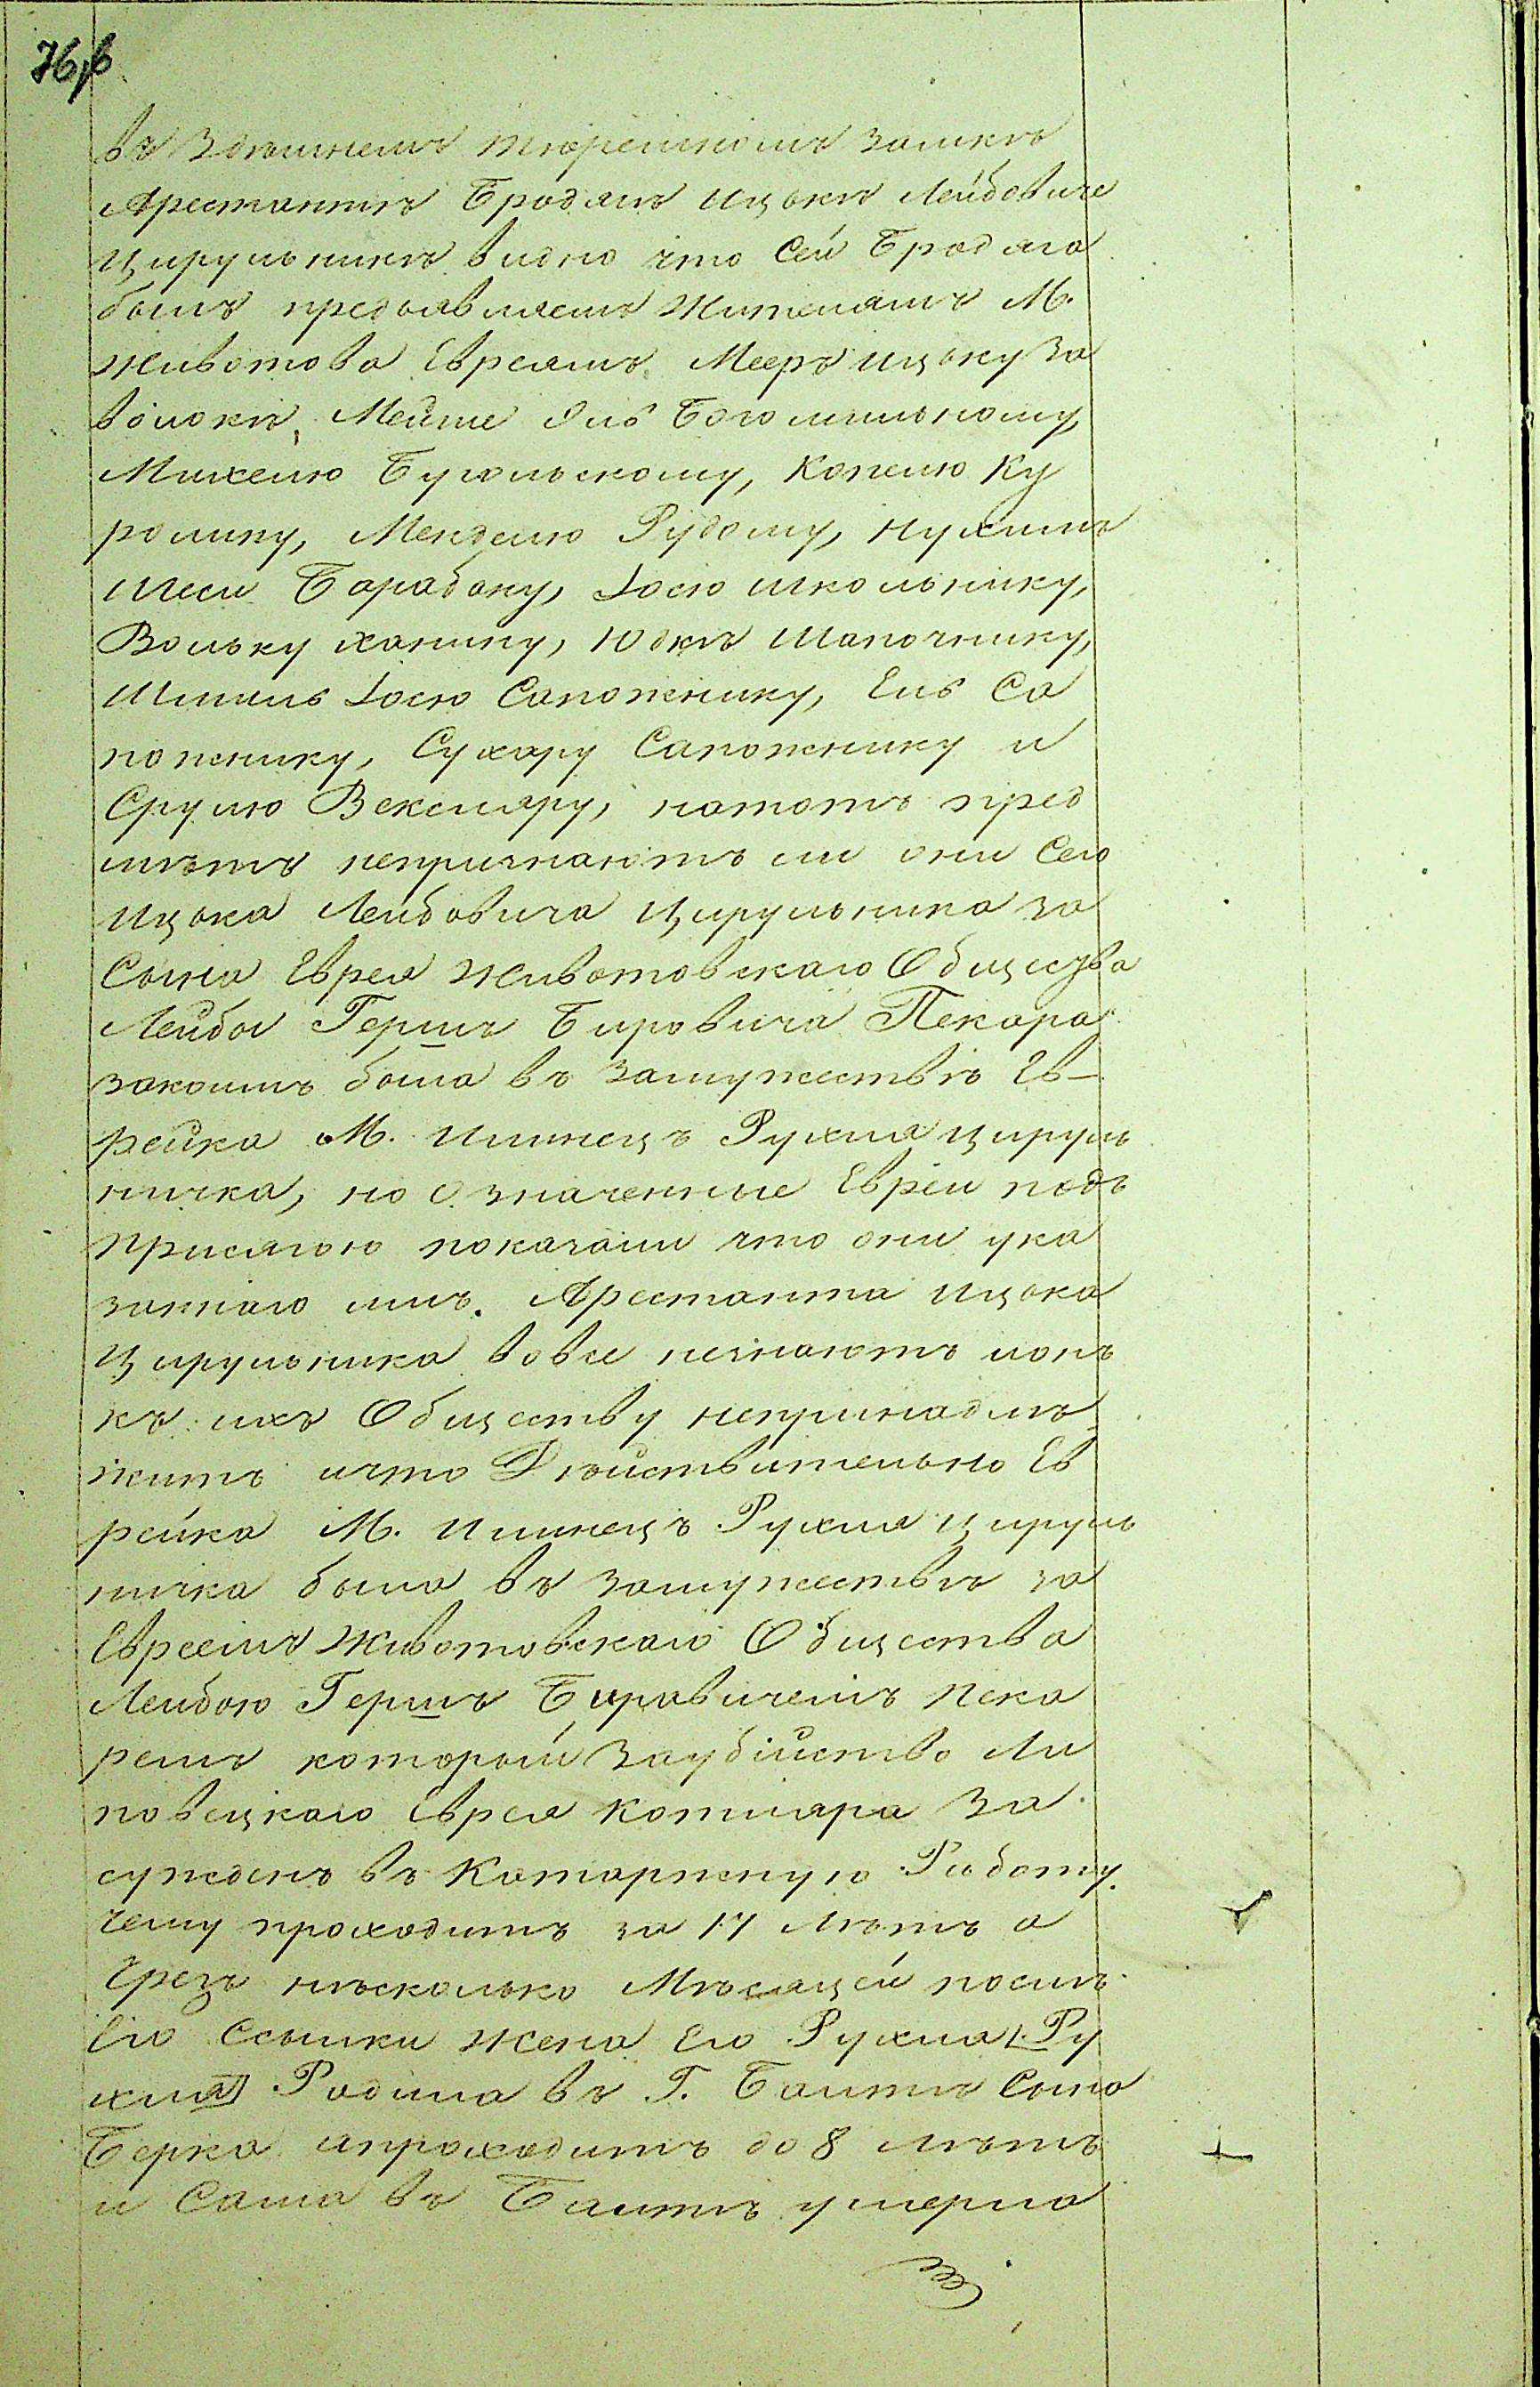 76,б
въ здѣшнемъ тюремномъ замкѣ
Арестантѣ Бродягѣ Ицькѣ Лейбовиче
Цирульникѣ видно что Сей Бродяга
былъ предъявляемъ Жителямъ М.
Животова Евреямъ Мееръ Ицьку За
волокѣ, Мейше Эль Богомильному,
Михелю Бугольскому, Копелю Ку
ролику, Менделю Рудому, Нухимъ
Иеси Барабану, Іосю Школьнику,
Вольку Ханину, Юдкѣ Шапочнику,
Шмиль Іосю Сапожнику, Ель Са
пожнику, Сухару Сапожнику и
Срулю Вексляру, натотъ пред
мѣтъ непризнаютъ ли они Сего
Ицька Лейбовича Цирульника за
Сына Еврея Животовскаго Общества
Лейбы Гершъ Бировича Пекара
закоимъ была въ замужествѣ Ев-
рейка М. Илинецъ Рухля Цируль
ничка, но Означенные Евреи подъ
присягою показали что они ука
заннаго имъ Арестанта Ицька
Цирульника вовсе незнаютъ ионъ
къ ихъ Обществу непринадлѣ-
житъ ичто Дѣйствительно Ев
рейка М. Илинецъ Рухля Цируль
ничка была въ замужествѣ за
Евреемъ Животовскаго Общества
Лейбою Гершъ Бировичемъ Пека
ремъ который заубійство Ли
повецкаго Еврея Котляра За
сужденъ въ Каторжную Работу
чему проходитъ за 17 лѣтъ а
Чрезъ нѣсколько Мѣсяцей послѣ
Его Ссылки жена Его Рухля [Ру
хля] Родила въ Г. Балтѣ Сына
Берка ипроходитъ до 8 лѣтъ
и Сама въ Балтѣ умерла